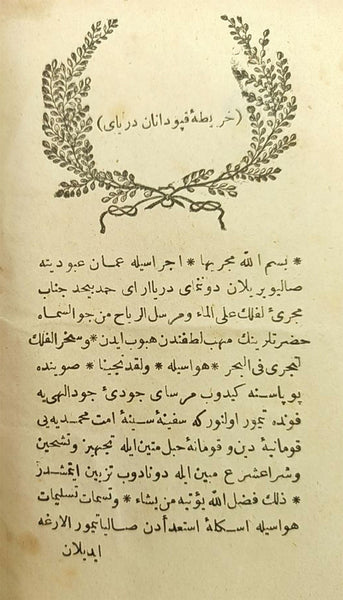 (خريطهٔ قپودانان دریای)
* بسم الله مجربها * اجراسیله عمان عبودیته
صالیویریلان دوننمای دریاارای حمدبیحد جناب
مجری الفلك علی الماء ومرسل الریاح من جوالسماء
حضرتلرینك مهب لطفندن هبوب ایدن * وسخرالفلك
لتجری فی البحر * هواسیله * ولقد نجینا * صوینده
پویاسنه کیدوب مرسای جودئ جودالهی‌یه
فونده تیمور اولنور که سفینهٔ سینهٔ امت محمدیه‌یی
قومانیهٔ دین وقومانهٔ حبل متین ایله تجهیز وتشحین
وشراعشرع مبین ایله دونادوب تزیین ایتمشدر
* ذلك فضل الله یؤتیه من یشاء * وتسمات تسلیمات
هواسیله اسکلهٔ استعدادن صالیاتیمور الارغه
ایدیلان